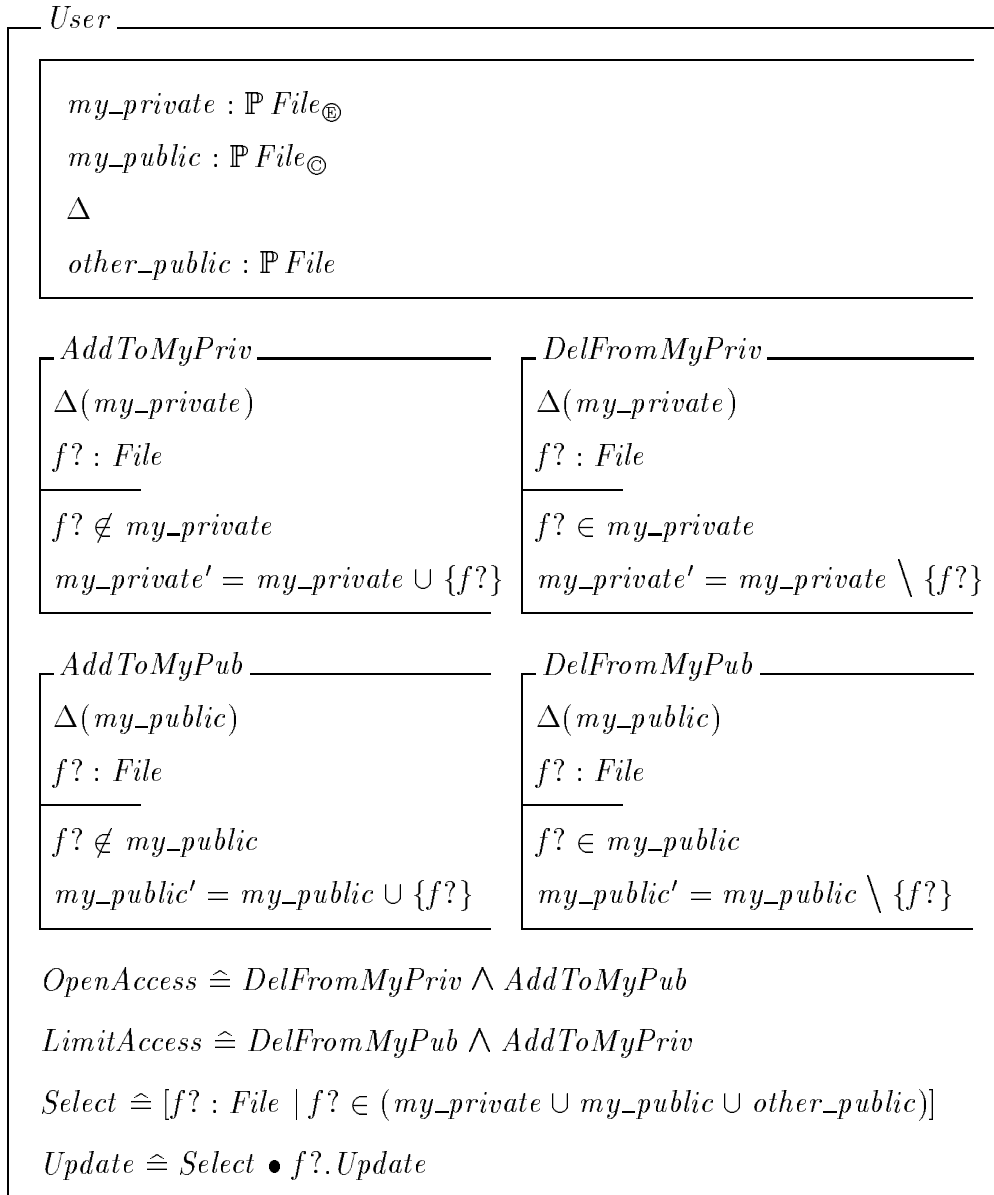 User
my_private : ℙ File Ⓔ
my_public : ℙ File ©
Δ
other_public : ℙ File
AddToMyPriv
Δ(my_private)
f? : File
f? ∉ my_private
my_private′ = my_private ∪ {f?}
DelFromMyPriv
Δ(my_private)
f? : File
f? ∈ my_private
my_private′ = my_private \ {f?}
AddToMyPub
Δ(my_public)
f? : File
f? ∉ my_public
my_public′ = my_public ∪ {f?}
DelFromMyPub
Δ(my_public)
f? : File
f? ∈ my_public
my_public′ = my_public \ {f?}
OpenAccess ≙ DelFromMyPriv ∧ AddToMyPub
LimitAccess ≙ DelFromMyPub ∧ AddToMyPriv
Select ≙ [f? : File | f? ∈ (my_private ∪ my_public ∪ other_public)]
Update ≙ Select • f?.Update